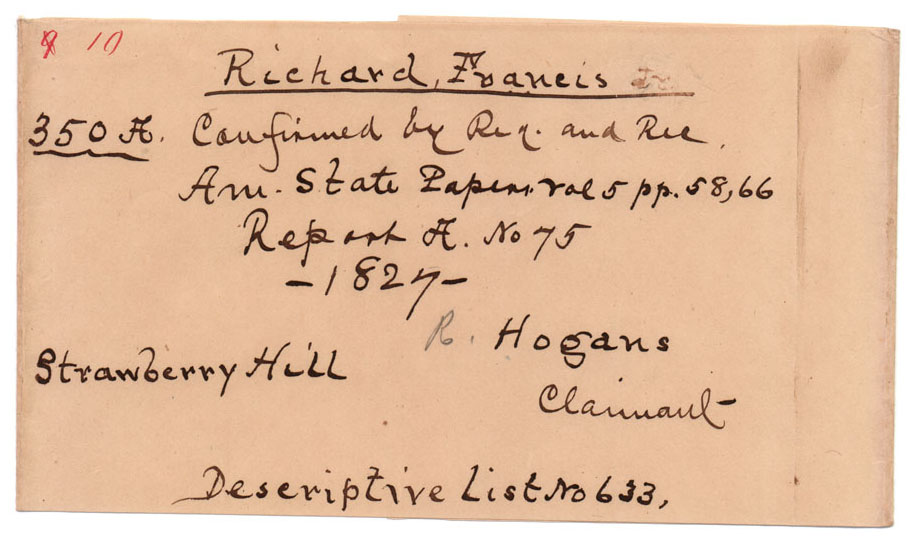 10
Richard, Francis
350 A. Confirmed by Reg. and Rec.
Am. State Papers, vol 5 pp. 58,66
Report A. No 75
-1827-
R. Hogans
Strawberry Hill
Claimant-
Descriptive List No 633,